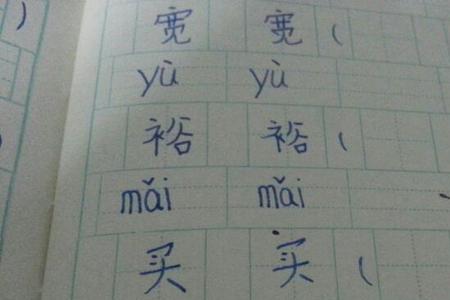 )
宽 宽 (
yù yù
裕 裕 (
mǎi mǎi
买 买 (